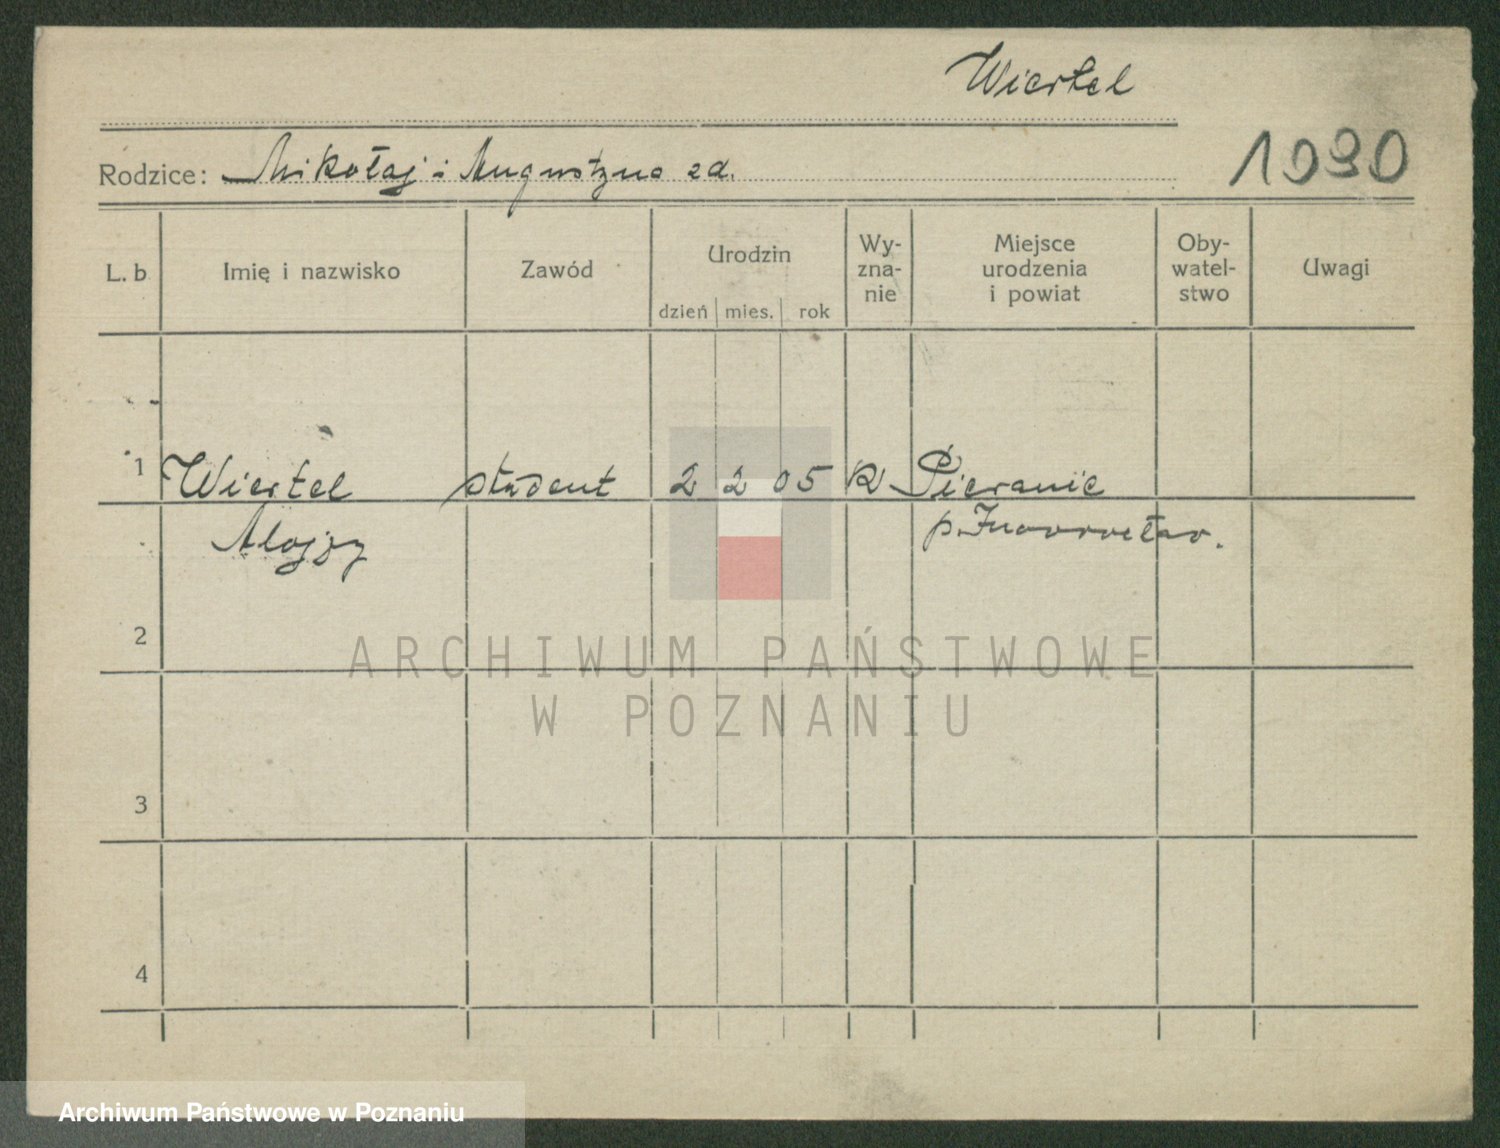 Wiertel
Rodzice: Mikołaj i Augustyna zd.
1930
L. b
Imię i nazwisko
Zawód
Urodzin
dzień mies. rok
Wy-
zna-
nie
Miejsce
urodzenia
i powiat
Oby-
watel-
stwo
Uwagi
1 Wiertel student 2 2 05 R Pieranie
Alojzy p.
2
3
4
ARCHIWUM PAŃSTWOWE
W POZNANIU
Archiwum Państwowe w Poznaniu